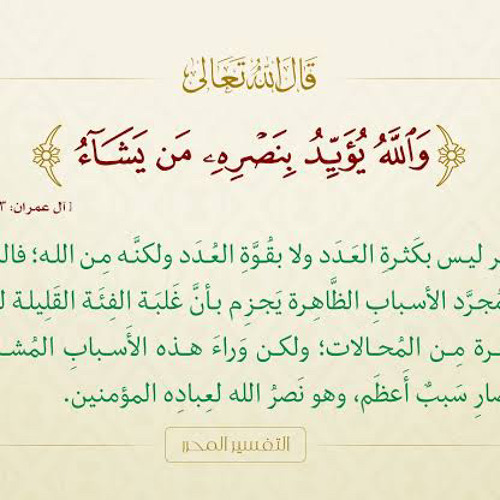 قَالَ اللهُ تَعَالَى
﴿وَٱللَّهُ يُؤَيِّدُ بِنَصۡرِهِۦ مَن يَشَآءُۚ﴾
[آل عمران: ٣
ليس بكَثرةِ العَدَد ولا بقُوَّةِ العُدَد ولكنَّه مِن الله؛
مُجرَّد الأسبابِ الظَّاهِرة يَجزِم بأنَّ غَلبَة الفِئَة القَلِيلة
مِن المُحالات؛ ولكن وَراءَ هـذه الأَسبابِ
سَببٌ أَعظَم، وهو نَصرُ الله لعِبادِه المؤمنين.
التفسير المحرر